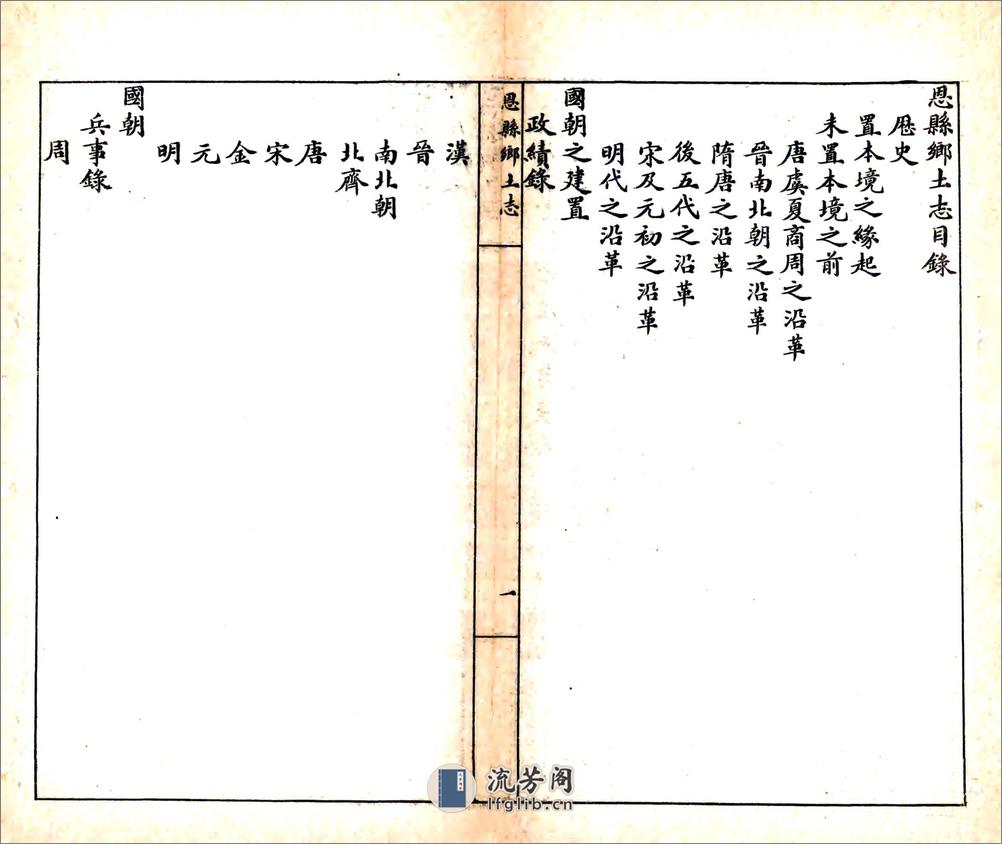 恩縣鄉土志目錄
歷史
置本境之緣起
未置本境之前
唐虞夏商周之沿革
晉南北朝之沿革
隋唐之沿革
後五代之沿革
宋及元初之沿革
明代之沿革
國朝之建置
政績錄
恩縣鄉土志
一
漢
晉
南北朝
北齊
唐
宋
金
元
明
國朝
兵事錄
周
流芳阁
lfglib.cn